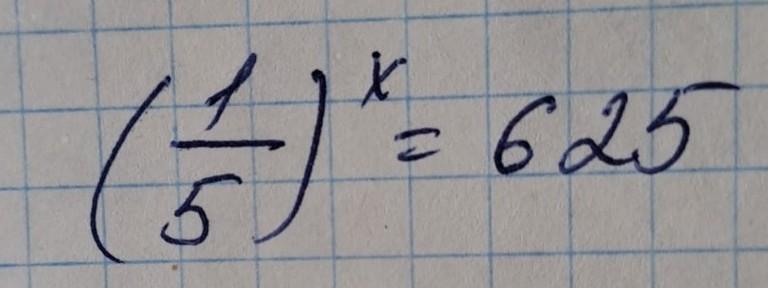 (1/5)^x = 625